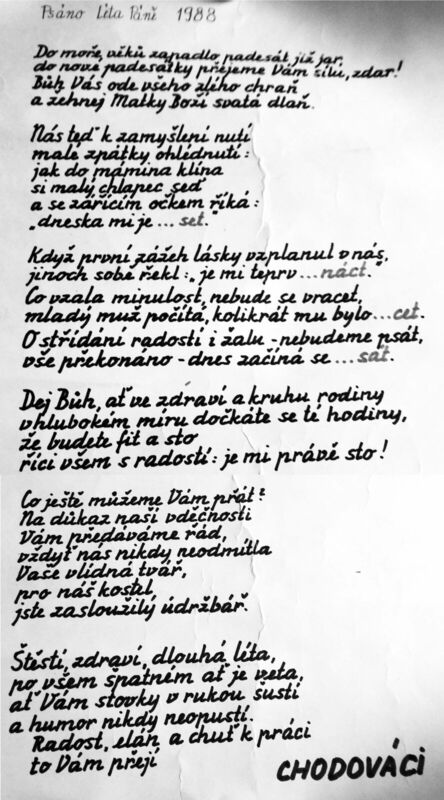 Psáno Léta Páně 1988
Do moře, věků zapadlo padesát již jar,
do nové padesátky přejeme Vám sílu, zdar!
Bůh Vás ode všeho zlého chraň
a žehnej Matky Boží svatá dlaň.
Nás teď k zamyšlení nutí
malé zpátky ohlédnutí:
jak do mámina klína
si malý chlapec seď
a se zářícím očkem říká:
"dneska mi je ... set."
Když první zážeh lásky vzplanul v nás,
jinoch sobě řekl: "je mi teprv ... náct."
Co vzala minulost, nebude se vracet,
mladý muž počítá, kolikrát mu bylo ... cet.
O střídání radostí i žalu - nebudeme psát,
vše překonáno - dnes začíná se ... sát.
Dej Bůh, ať ve zdraví a kruhu rodiny
v hlubokém míru dočkáte se té hodiny,
že budete fit a sto
říci všem s radostí: je mi právě sto!
Co ještě můžeme Vám přát?
Na důkaz naší vděčnosti
Vám předáváme řád,
vždyť nás nikdy neodmítla
Vaše vlídná tvář,
pro náš kostel
jste zasloužilý údržbář.
Štěstí, zdraví, dlouhá léta,
po všem špatném ať je veta,
ať Vám stovky v rukou šustí
a humor nikdy neopustí.
Radost, elán a chuť k práci
to Vám přejí
CHODOVÁCI